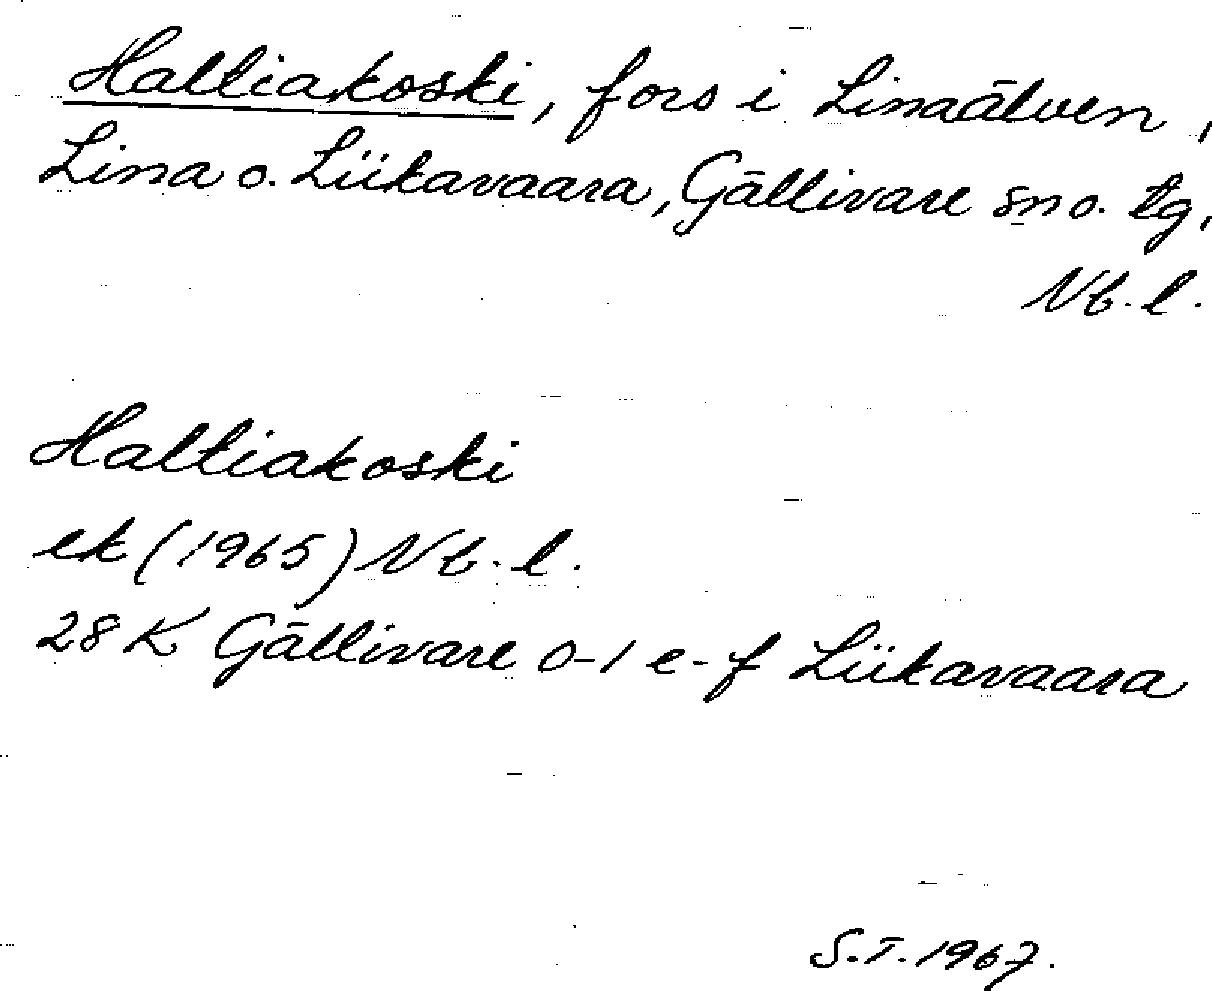 Haltiakoski, fors i Linaälven,
Lina o. Liikavaara, Gällivare sn o. tg,
Nb. l.
Haltiakoski
ek (1965) Nb. l.
28 K Gällivare 0-1 e-f Liikavaara
S.T. 1967.